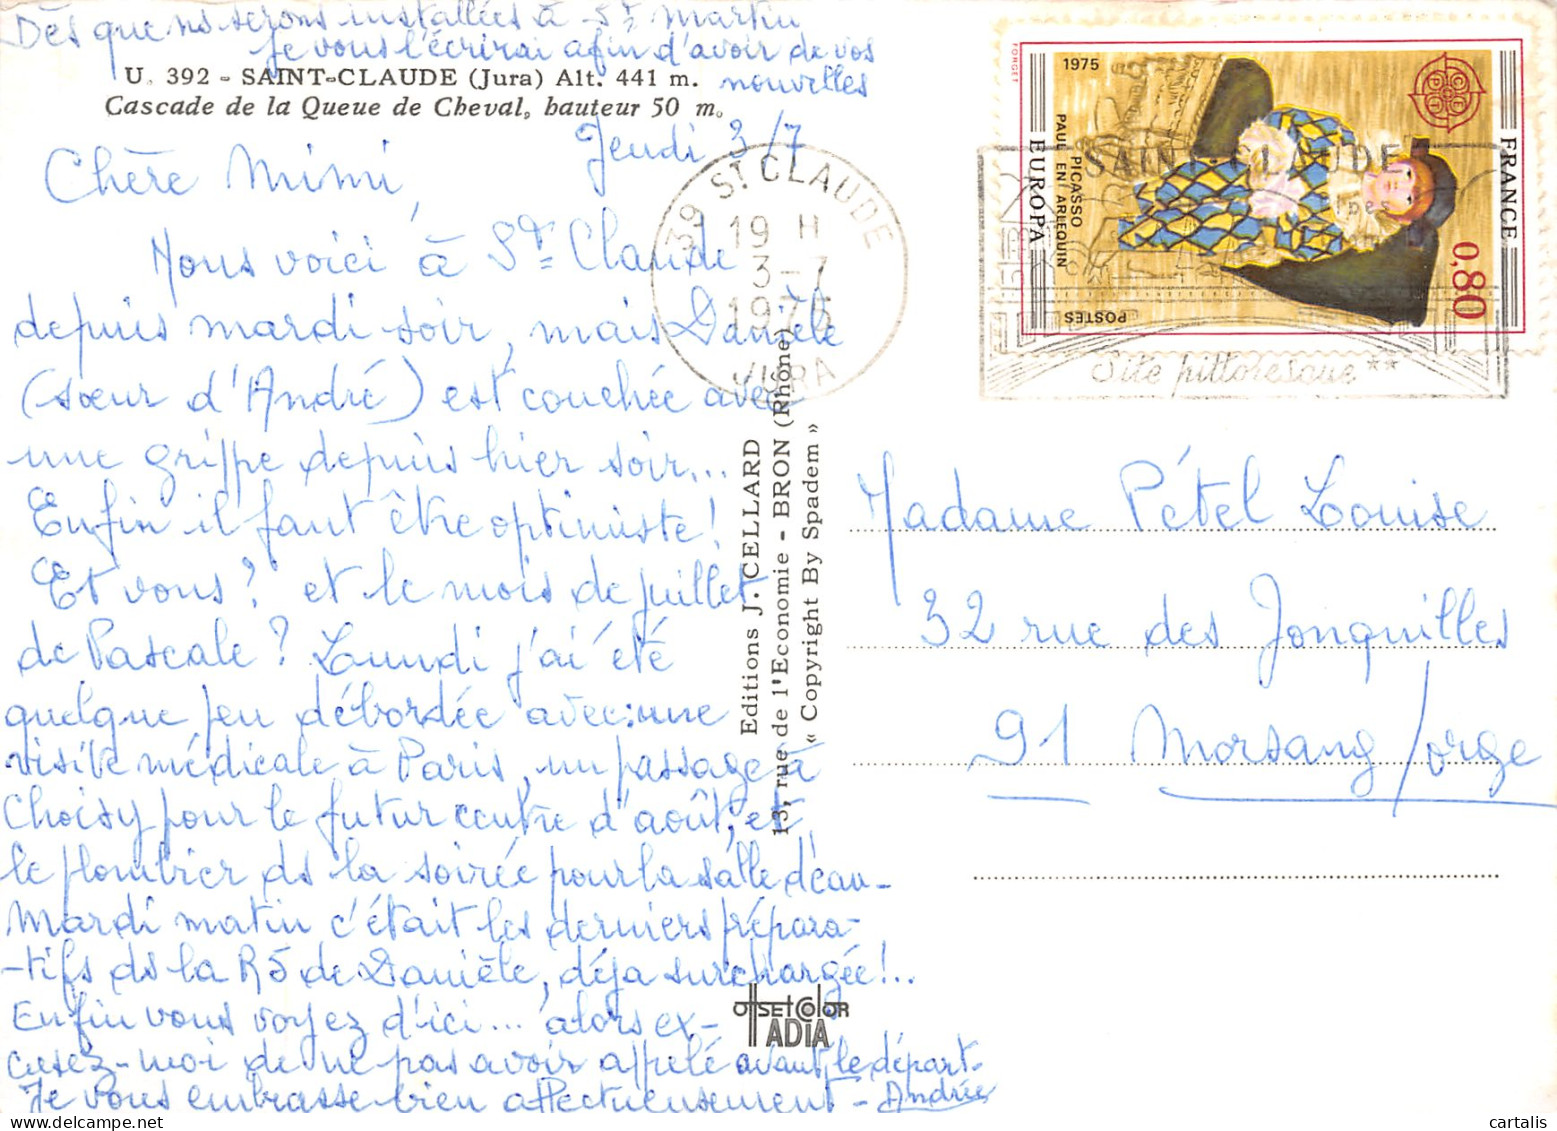 Dès que ns serons installées à St Martin
je vous l'écrirai afin d'avoir de vos
nouvelles
U. 392 - SAINT-CLAUDE (Jura) Alt. 441 m.
Cascade de la Queue de Cheval, hauteur 50 m.
Jeudi 3/7
Chère Mimi,
Nous voici à St Claude
depuis mardi soir, mais Danièle
(sœur d'André) est couchée avec
une grippe depuis hier soir...
Enfin il faut être optimiste!
Et vous? et le mois de juillet
de Pascale? Lundi j'ai été
quelque peu débordée avec: une
visite médicale à Paris, un passage à
Choisy pour le futur centre d'août, et
le plombier ds la soirée pour la salle d'eau-
Mardi matin c'était les derniers prépara-
-tifs ds la R5 de Danièle, déja surchargée!..
Enfin vous voyez d'ici... alors ex-
cusez-moi de ne pas avoir appelé avant le départ-
Je vous embrasse bien affectueusement - Andrée
Editions J. CELLARD
13, rue de l'Economie - BRON (Rhône)
« Copyright By Spadem »
OffSET COlOR
IADIA
39 St CLAUDE
19 H
3-7
1975
JURA
FORGET
1975
PICASSO
PAUL EN ARLEQUIN
EUROPA
POSTES
FRANCE
0,80
CEPT
SAINT-CLAUDE
Site pittoresque **
Madame Pétel Louise
32 rue des Jonquilles
91 Morsang/orge
www.cartalis